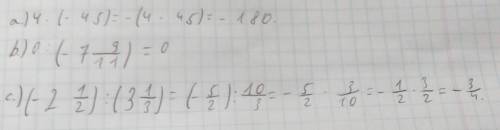 a.) 4 · (- 45) = -(4 · 45) = - 180.
b.) 0 : (- 7 9/11) = 0
c.) (- 2 1/2) : (3 1/3) = (- 5/2) : 10/3 = - 5/2 · 3/10 = - 1/2 · 3/2 = - 3/4.